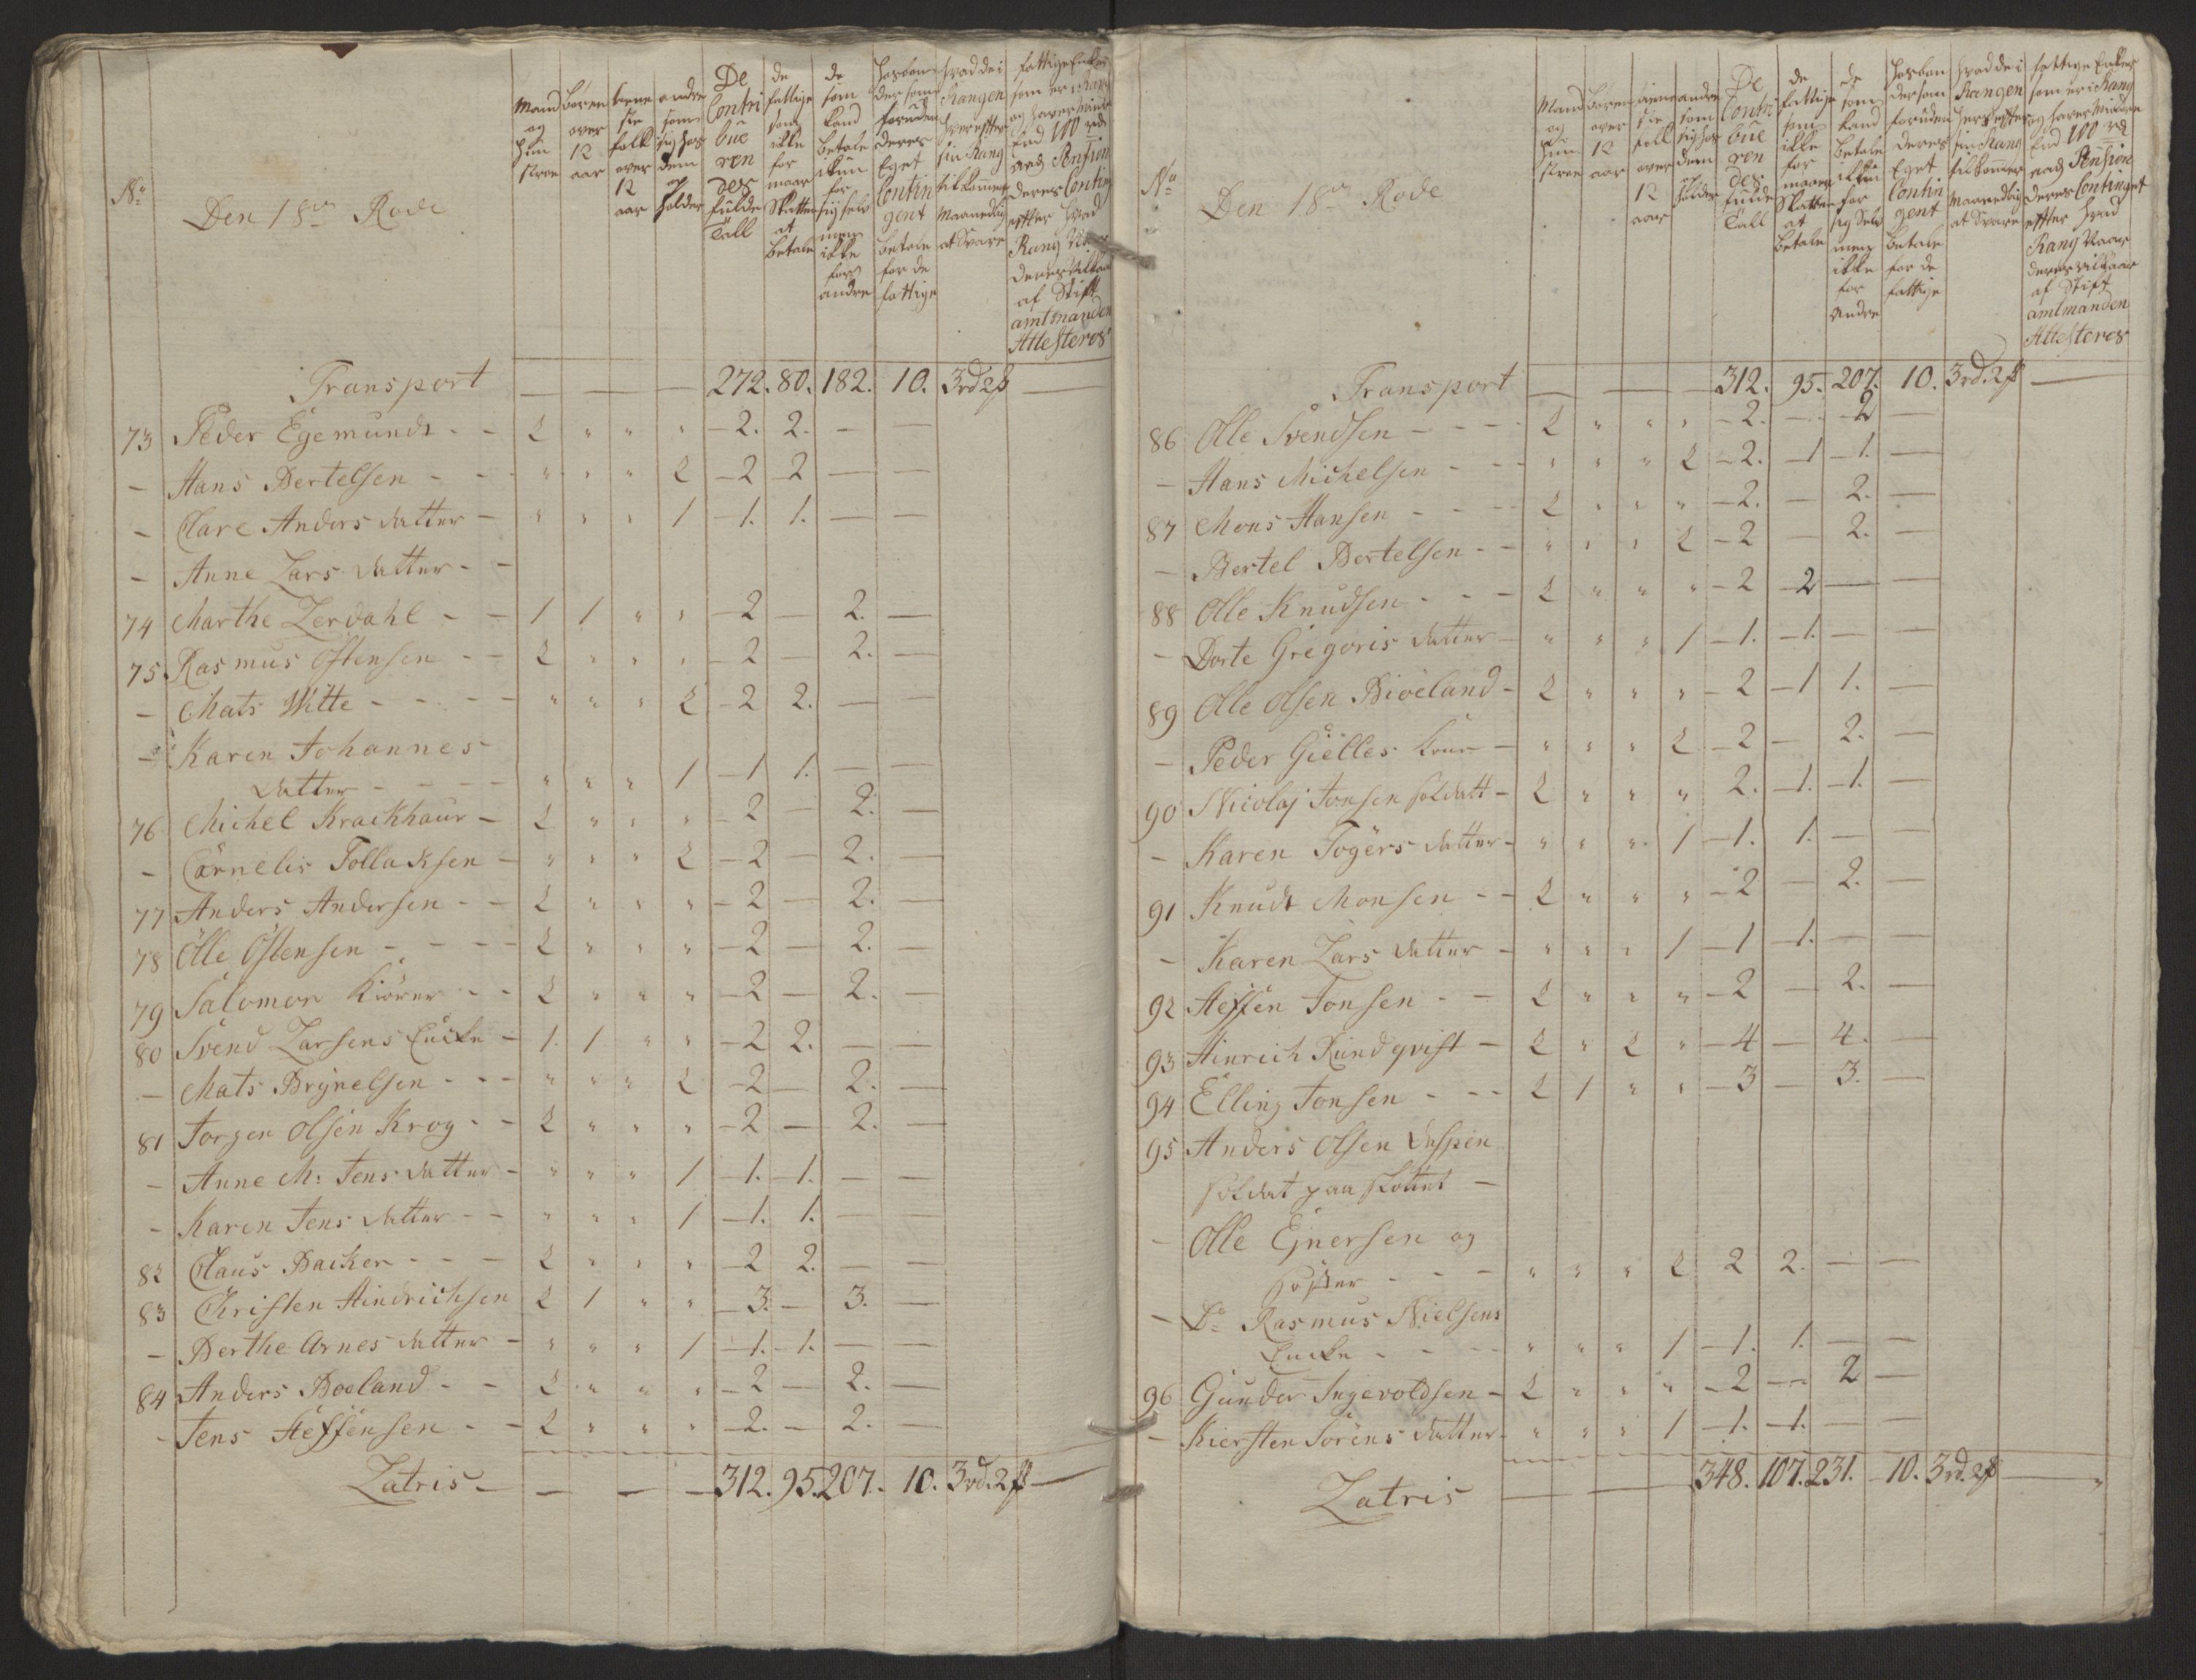 No
Den 18de Rode
Mand og Hustroe
Børen over 12 aar
tienneste folk over 12 aar
andre som sig hos dem op holder
De Contribue rendes fulde Tall
de fattige som ikke formaar Skatten at betale
de som kand betale ikkun for sig selv men ikke for andre
Hosbonder som foruden deres Eget Contingent betale for de fattige
Hvad de i Rangen Hver efter sin Rang tilkommer Maanedlig at Svare
fattige Enker som er i Rang og haver Mindre End 100 rd aarl Pension deres Contingent efter Hvad Rang Naar deres Vilkaar af Stift amtmanden Attesteres
Transport — — — 272. 80. 182. 10. 3rd 2ß —
73 Peder Egemundt - - 2 " " " - 2. 2. — —
- Hans Bertelsen - - " " " 2 - 2 2 — —
- Clare Anders datter - " " " 1 - 1. 1. — —
- Anne Lars datter - -
74 Marthe Lerdahl - - 1 1 " " - 2 — 2. —
75 Rasmus Ostensen - - 2 " " " - 2 — 2. —
- Mats Witte - - - - " " " 2 - 2 2. — —
- Karen Johannes
datter - - - - " " " 1 - 1 1. — —
76 Michel Krackhaur - 2 " " " - 2 — 2. —
- Cornelis Tollaksen - " " " 2 - 2 — 2. —
77 Anders Andersen - - 2 " " " - 2 — 2. —
78 Olle Ostensen - - - - 2 " " " - 2 — 2. —
79 Salomon Kiører - - 2 " " " - 2 — 2. —
80 Svend Larsens Encke - 1. 1 " " - 2 2. — —
- Mats Brynelsen - - - " " " 2 - 2 — 2. —
81 Jorgen Olsen Krog - - 2 " " " - 2 — 2. —
- Anne M: Jens datter - " " " 1 - 1. - 1. — —
- Karen Jens datter - - " " " 1 - 1. 1. — —
82 Claus Backer - - - 2 " " " - 2 2. — —
83 Christen Hindrichsen 2 1 " " - 3. — 3. —
- Berthe Arnes datter - " " " 1 - 1. - 1. — —
84 Anders Boeland - - 2 " " " - 2 — 2. —
- Jens Steffensen - - 2 " " " - 2. — 2. —
Latris - — — — 312. 95. 207. 10. 3rd. 2ß —
No
Den 18de Rode
Mand og Hustroe
Børen over 12 aar
tienneste folk over 12 aar
andre som sig hos dem op holder
De Contribue rendes fulde Tall
de fattige som ikke formaar Skatten at betale
de som kand betale ikkun for sig Selv men ikke for Andre
Hosbonder som foruden deres Eget Contingent betale for de fattige
Hvad de i Rangen Hver efter sin Rang tilkommer Maanedlig at Svare
fattige Enker som er i Rang og haver Mindre End 100 rd aarl Pension deres Contingent efter Hvad Rang Naar deres Vilkaar af Stift amtmanden Attesteres
Transport — — 312. 95. 207. 10. 3rd. 2ß —
86 Olle Svendsen - - - - 2 " " " - 2. — 2 —
- Hans Michelsen - - - " " " 2 - 2. - 1 - 1. —
87 Mons Hansen - - - - 2 " " " - 2. — 2. —
- Bertel Bertelsen - - " " " 2 - 2 — 2. —
88 Olle Knudsen - - - 2 " " " - 2 - 2 — —
- Dorte Gregoris datter - " " " 1 - 1. - 1. — —
89 Olle Olsen Bioeland - 2 " " " - 2 - 1 1. —
- Peder Gielles Kone - " " " 2 - 2 — 2. —
90 Nicolaj Jonsen soldatt - 2 " " " 2. - 1. - 1. —
- Karen Togers datter - " " " 1 - 1. 1. — —
91 Knudt Monsen - - 2 " " " - 2 — 2. —
- Karen Lars datter - " " " 1 - 1 - 1. — —
92 Steffen Jonsen - - 2 " " " - 2 — 2. —
93 Hinrich Rundqvist - 2 " 2 " - 4 — 4. —
94 Elling Jonsen - - - 2 1 " " - 3 — 3. —
95 Anders Olsen
soldat paa slottet -
- Olle Ejnersen og
søster - - - " " " 2 2 2. — —
- Do Rasmus Nielsens
Encke - - - - " " " 1 - 1. 1. — —
96 Gunder Ingevoldsen - 2 " " " - 2 — 2 —
- Kiersten Sorens datter - " " " 1 - 1. - 1. — —
Latris — — 348. 107. 231. 10. 3rd. 2ß — "